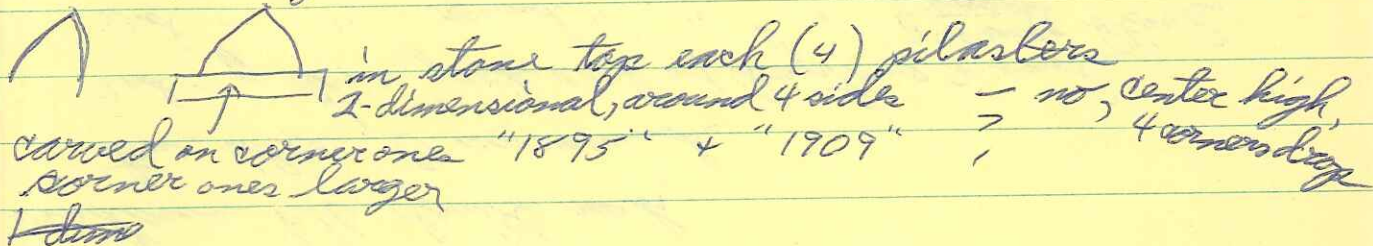 in stone top each (4) pilasters
2-dimensional, around 4 sides - no, center high,
carved on corner ones "1895" + "1909" 4 corners drop
corner ones larger